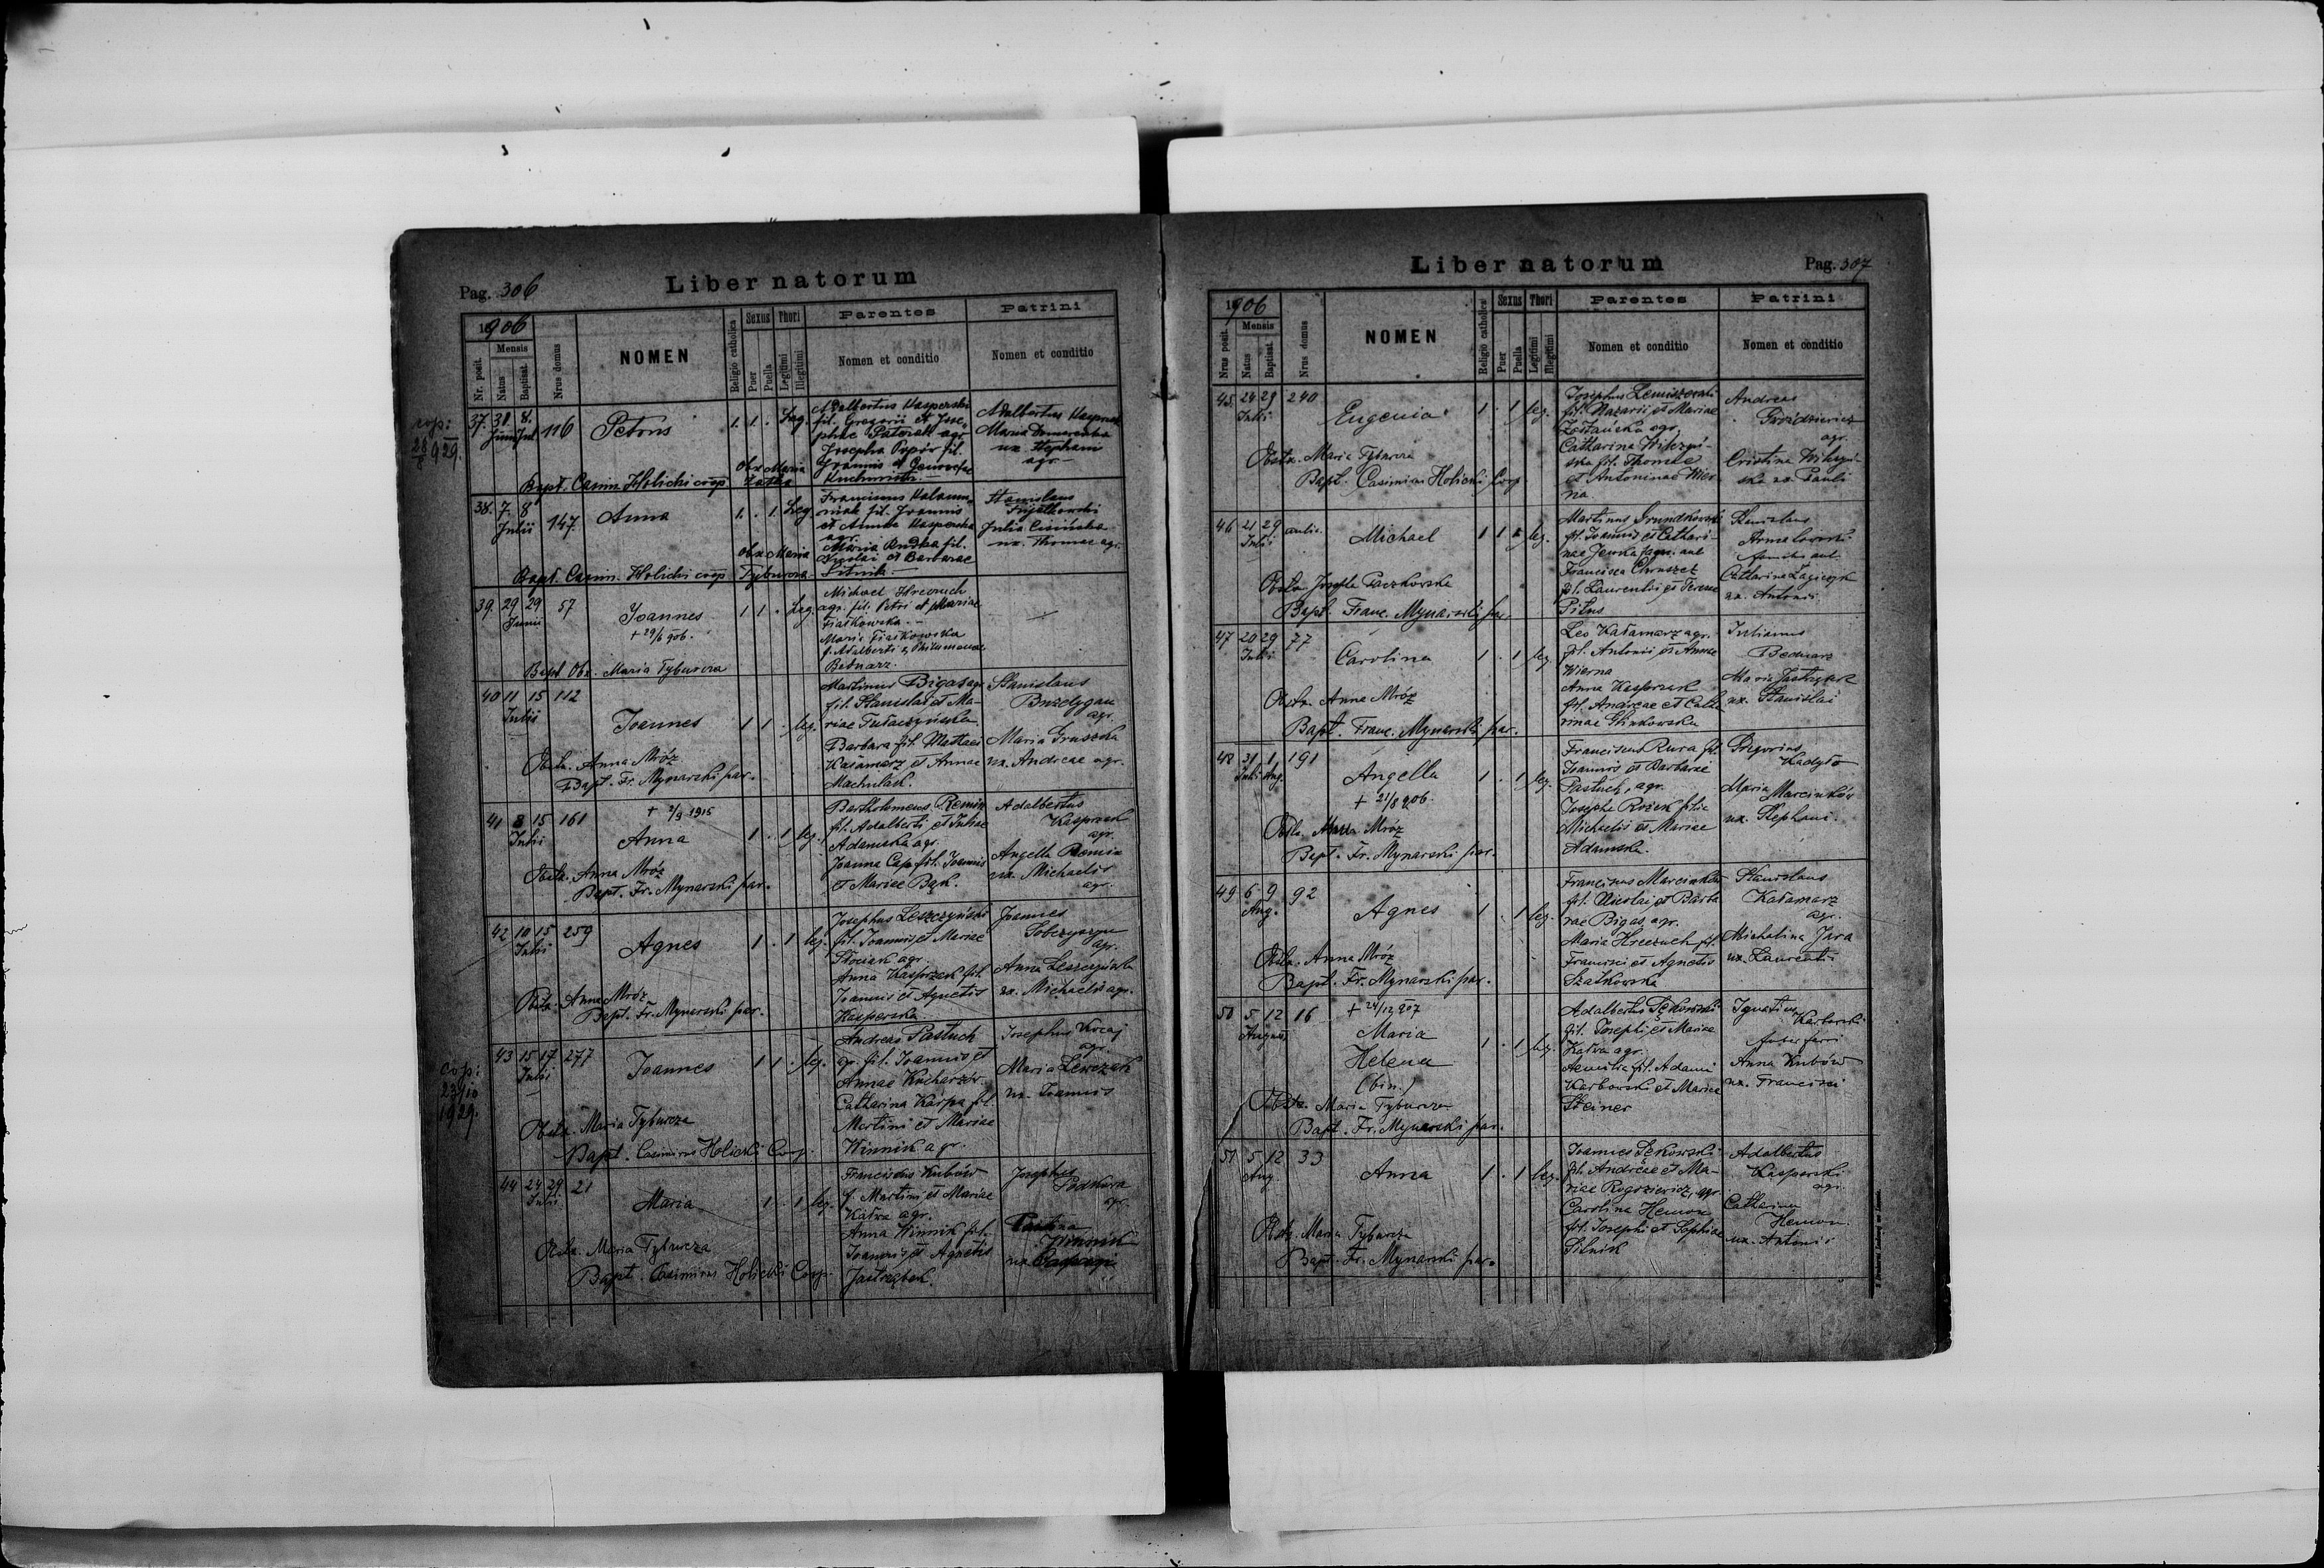 Pag. 306
Liber natorum
1906
Nr. posit.
Mensis
Natus
Baptisat.
Nrus domus
NOMEN
Religio catholica
Sexus
Puer
Puella
Thori
Legitimi
Illegitimi
Parentes
Nomen et conditio
Patrini
Nomen et conditio
cop:
1929.
37. 8. 116 Petrus 1. 1. . Leg.
Adalbertus Kasperski
fil. Gregorii et Jose-
phae agr.
Josepha fil.
Joannis et Genovefae
Adalbertus
Maria
ux. Stephani
agr.
Obx Maria
Bapt. Casim. Holicki coop
38. 7. 8 147 Anna 1. . 1. Leg
Julii
Franciscus
fil. Joannis
et Annae Kasperska
agr.
Maria fil.
Nicolai et Barbarae
Sitnik
Stanislaus
Julia
ux. Thomae agr.
Obx Maria
Bapt. Casim. Holicki coop Tyburcza
39. 29 29 57 Joannes 1 1 . Leg.
Junii
+ 29/6 906.
Michael Hreczuch
agr. fil. Petri et Mariae
Fiałkowska
Maria Fiałkowska
f. Adalberti & Philomenae
Bednarz.
Bapt Obx. Maria Tyburcza
40 11 15 112 Joannes 1 1 . leg.
Julii
Martinus Bigas agr
fil. Stanislai et Ma-
riae
Barbara fil. Mathaei
Kałamarz et Annae
Machulak.
Stanislaus
agr.
Maria Gruszka
ux. Andreae agr.
Obstx. Anna Mróz
Bapt. Fr. Mynarski par.
41 8 15 161 + 2/9 1915
Julii
Anna 1 . 1 leg.
Bartholomeus Remin
fil. Adalberti et Juliae
Adamska agr.
Joanna Cap fil. Joannis
et Mariae Bąk.
Adalbertus
Kasprzak
agr.
Angella Remin
ux. Michaelis
agr.
Obstx. Anna Mróz
Bapt. Fr. Mynarski par.
42 10 15 259 Agnes 1 . 1 leg.
Julii
Josephus Leszczyński
fil. Joannis et Mariae
agr.
Anna Kasprzak fil.
Joannis et Agnetis
Kasperska.
Joannes
Sobczyszyn
agr.
Anna Leszczyńska
ux. Michaelis agr.
Obstx. Anna Mróz
Bapt. Fr. Mynarski par.
cop:
23/10
1929.
43 15 17 277 Joannes 1 1 . leg.
Julii
Andreas Pastuch
agr. fil. Joannis et
Annae Kucharzów.
Catharina Karpa fil.
Martini et Mariae
Winnik agr.
Josephus
agr.
Maria Lewczak
ux. Joannis
Obstx. Maria Tyburcza
Bapt. Casimirus Holicki Coop.
44 24 29 21 Maria 1 . 1 leg.
Julii
Franciscus Kubów
f. Martini et Mariae
Kałwa agr.
Anna Winnik fil.
Joannis et Agnetis
Jastrząbek.
Josephus
Podkówa
agr.
Winnik
ux.
Obstx. Maria Tyburcza
Bapt. Casimirus Holicki Coop.
Liber natorum
Pag. 307
1906
Nrus posit.
Mensis
Natus
Baptisat.
Nrus domus
NOMEN
Religio catholica
Sexus
Puer
Puella
Thori
Legitimi
Illegitimi
Parentes
Nomen et conditio
Patrini
Nomen et conditio
45 24 29 240 Eugenia 1 . 1 leg.
Julii
Josephus Lemiszewski
fil. Nazarii et Mariae
agr.
Catharina Wilczyń-
ska fil. Thomae
et Antoninae Wier-
na
Andreas
Gwóździewicz
agr.
Cristina Wilczyń-
ska ux. Pauli
Obstx. Maria Tyburcza
Bapt. Casimirus Holicki Coop
46 21 29 Michael 1 1 leg.
Julii
Martinus Grundkowski
fil. Joannis et Cathari-
nae
Francisca Chruszcz
fil. Laurentii et Teresae
Pitus
Stanislaus
Catharina
ux. Antonii.
Obstx. Josepha Paczkowska
Bapt. Franc. Mynarski par.
47 20 29 77 Carolina 1 . 1 leg.
Julii
Leo Kałamarz agr.
fil. Antonii et Annae
Wierna
Anna Kasprzak
fil. Andreae et Catha
rinae
Julianus
Bednarz
Maria Jastrząbek
ux. Stanislai
Obstx. Anna Mróz
Bapt. Franc. Mynarski par.
48 31 1 191 Angella 1 . 1 leg.
Julii Aug.
+ 21/8 906.
Franciscus Rura fil.
Joannis et Barbarae
Pastuch, agr.
Josepha Rożek filia
Michaelis et Mariae
Adamska.
Gregorius
Kadyło
Maria Marcinków
ux. Stephani.
Obstx. Anna Mróz
Bapt. Fr. Mynarski par.
49 6 9 92 Agnes 1 . 1 leg.
Aug.
Franciscus Marcinków
fil. Nicolai et Barba
rae Bigas, agr.
Maria Hreczuch fil.
Francisci et Agnetis
Szatkowska
Stanislaus
Kałamarz
agr.
Michalina Jara
ux. Laurentii
Obstx. Anna Mróz
Bapt. Fr. Mynarski par.
50 5 12 16 + 24/12 907
August
Maria
Helena
(bin.)
1 . 1 leg.
Adalbertus Sękowski
fil. Josephi et Mariae
Kałwa agr.
Aemilia fil. Adami
Karbowski et Mariae
Steiner
Ignatius
Karbowski
faber ferri
Anna Kubów
ux. Francisci
Obstx. Maria Tyburcza
Bapt. Fr. Mynarski par.
51 5 12 33 Anna 1 . 1 leg.
Aug
Joannes Sękowski
fil. Andreae et Ma-
riae Rogoziewicz, agr.
Carolina Hemon
fil. Josephi et Sophiae
Sitnik
Adalbertus
Kasperski
agr.
Catharina
Hemon
ux. Antonii
Obstx. Maria Tyburcza
Bapt. Fr. Mynarski par.